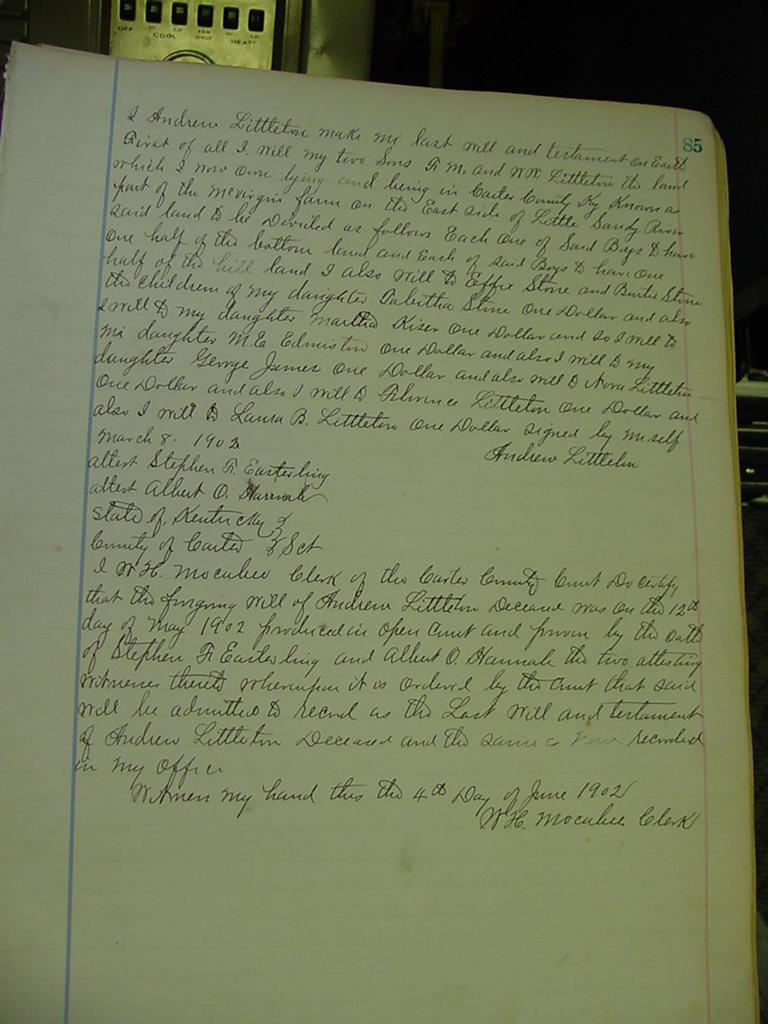 OFF
COOL
FAN ONLY
HEAT
85
I Andrew Littleton make mi last will and testament on Earth
First of all I will my two Sons F M and W W Littleton the land
which I now own lying and being in Carter County Ky Known as
part of the mcvirgin farm on the East side of Little Sandy River
said land to be Divided as follows Each One of Said Boys to have
One half of the bottom land and Each of said Boys to have one
half of the hill land I also will to Effie Stone and Stone
the children of my daughter Tabitha Stone One Dollar and also
I will to my daughter martha Kiser One Dollar and so I will to
mi daughter M E Edmiston One Dollar and also I will to my
daughter George James One Dollar and also will to Nora Littleton
One Dollar and also I will to Florence Littleton One Dollar and
also I will to Laura B. Littleton One Dollar signed by miself
march 8. 1902
Andrew Littleton
attest Stephen F. Easterling
attest Albert O. Hannah
State of Kentucky }
County of Carter } Sct
I W H. Mocabee Clerk of the Carter County Court Do certify
that the forgoing will of Andrew Littleton Decease was on the 12th
day of May 1902 produced in open Court and proven by the oath
of Stephen F Easterling and Albert O. Hannah the two attesting
witnesses thereto whereupon it is ordered by the Court that said
will be admitted to record as the Last Will and testament
of Andrew Littleton Deceased and the same is now recorded
in my office
Witness my hand this the 4th Day of June 1902
W H. Mocabee Clerk